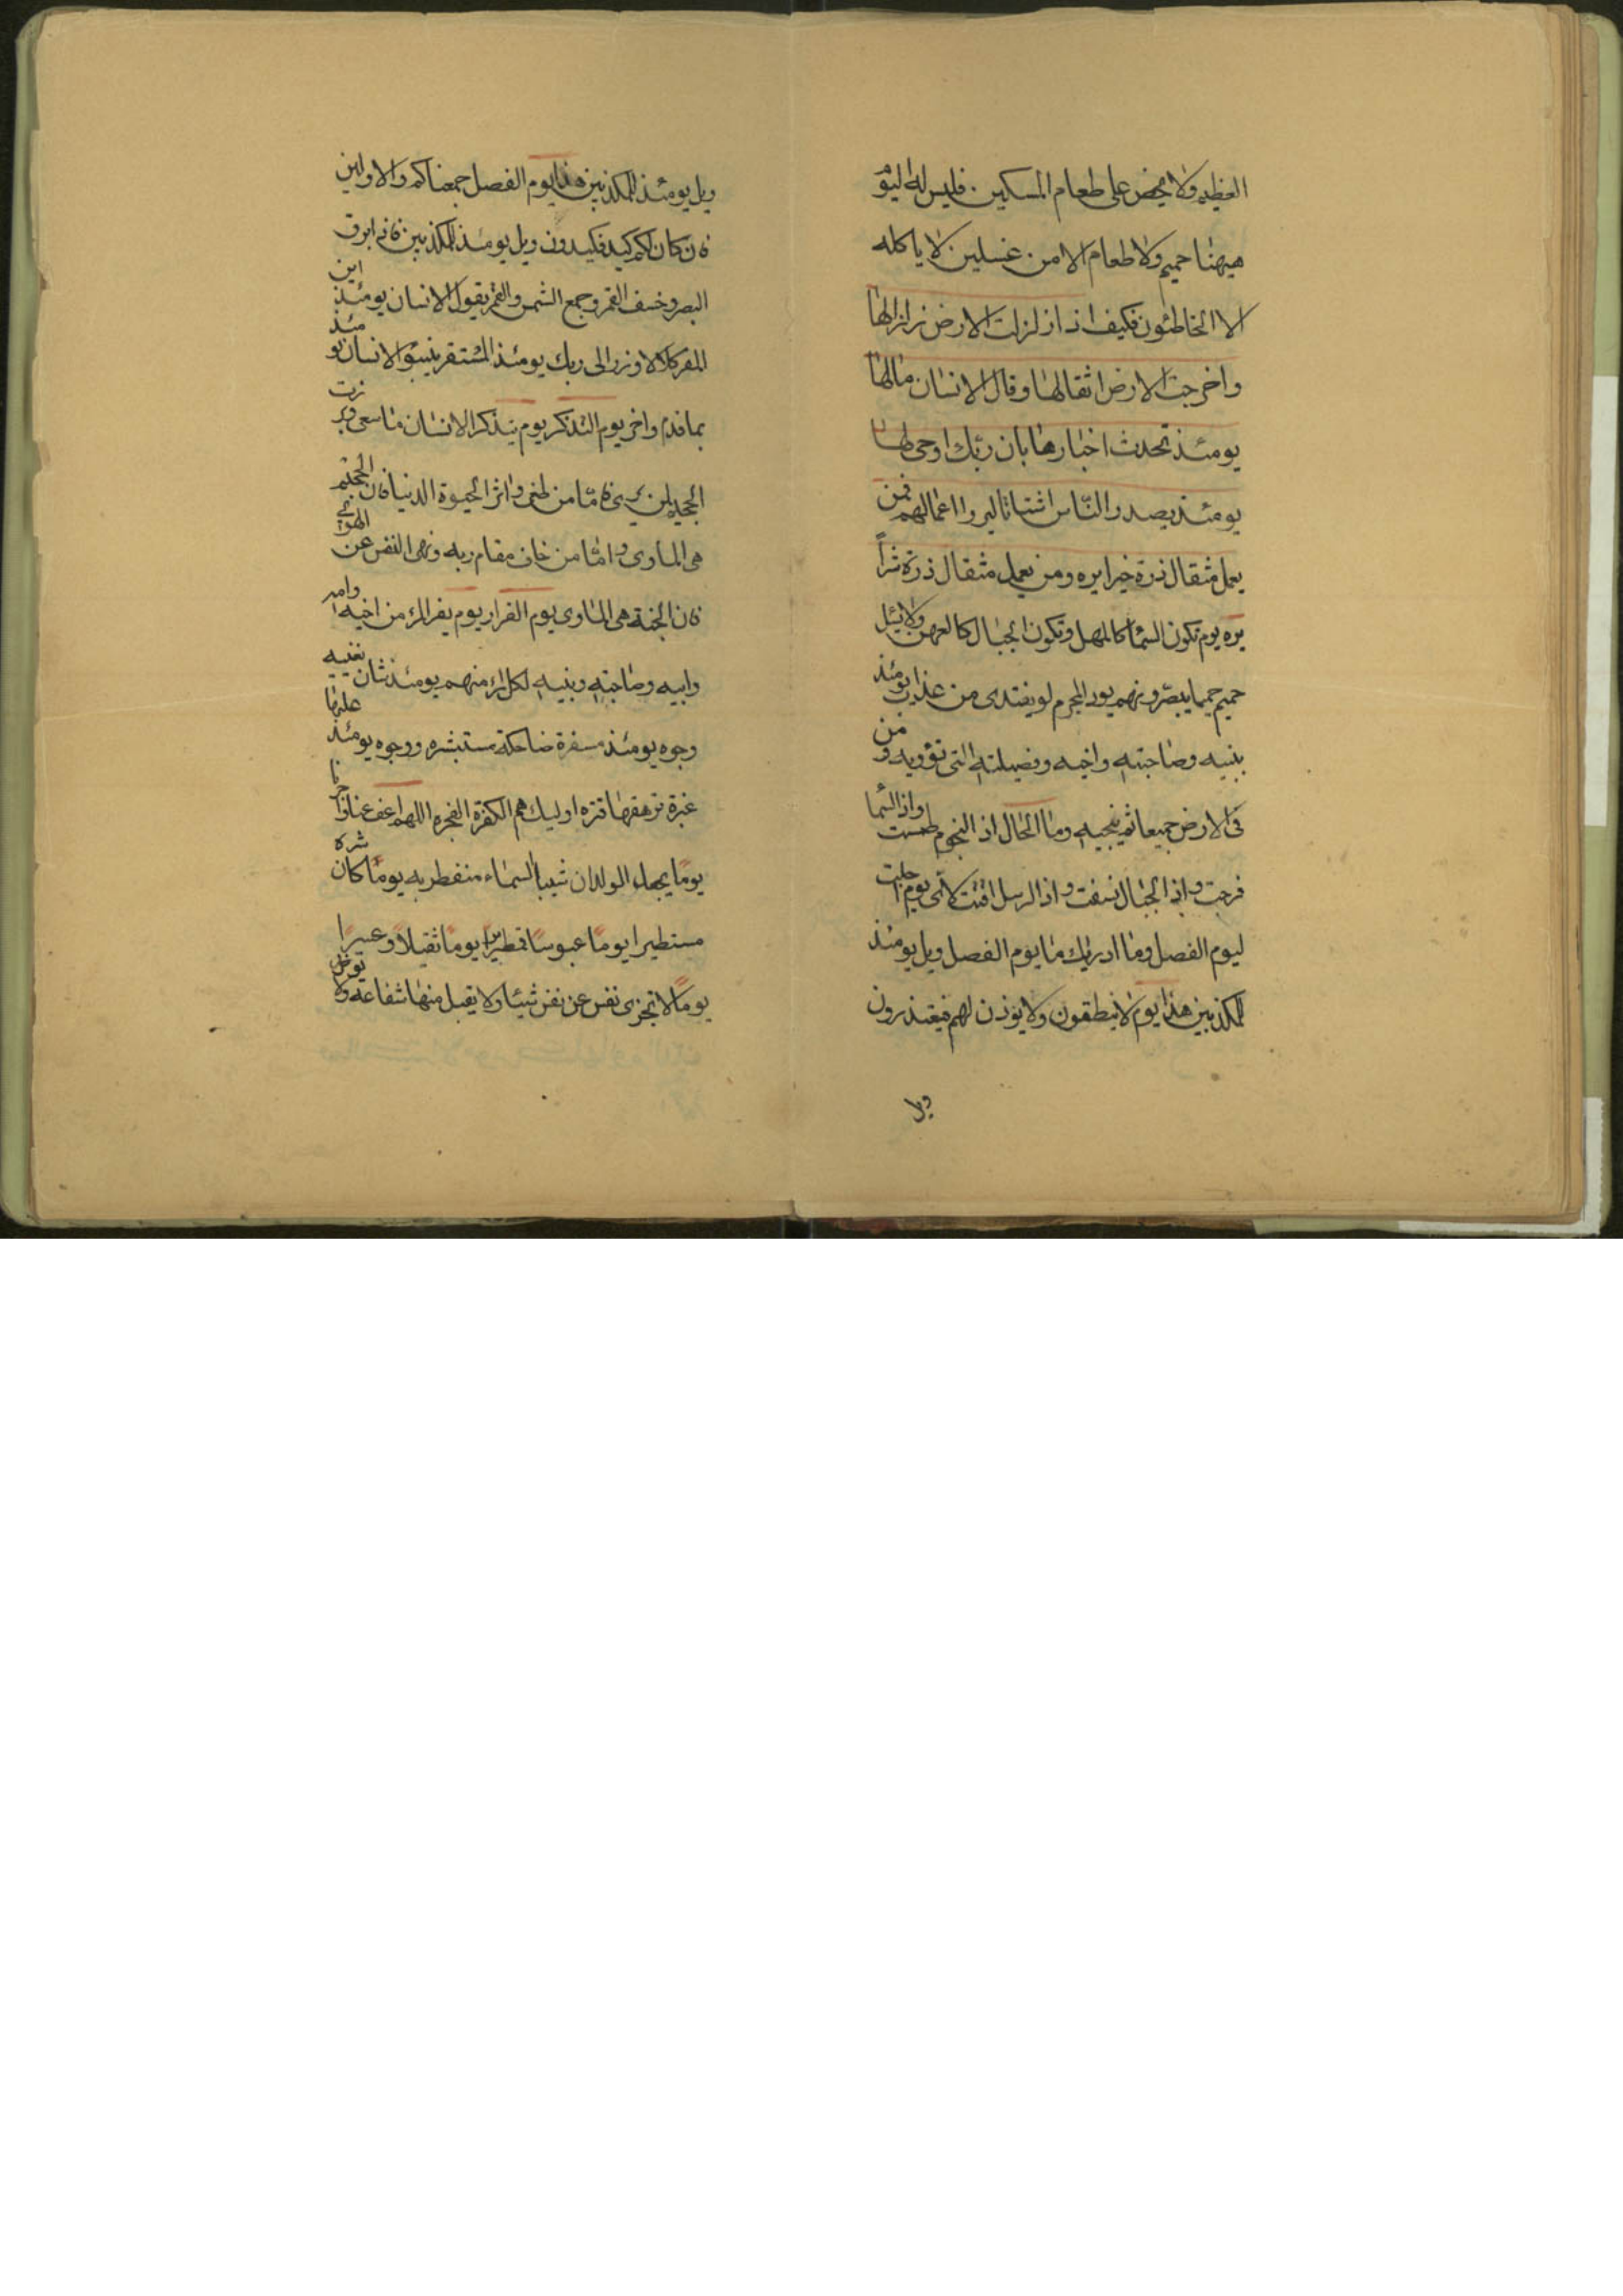 العظيم ولا يحض على طعام المسكين فليس له اليوم
هيهنا حميم ولا طعام الا من غسلين لا ياكله
الا الخاطئون فكيف اذا زلزلت الارض زلزالها
واخرجت الارض اثقالها وقال الانسان مالها
يومئذ تحدث اخبارها بان ربك اوحى لها
يومئذ يصدر الناس اشتاتا ليروا اعمالهم فمن
يعمل مثقال ذرة خيرا يره ومن يعمل مثقال ذرة شراً
يره يوم تكون السماء كالمهل وتكون الجبال كالعهن ولا يسئل
حميم حميما يبصرونهم يود المجرم لو يفتدى من عذاب يومئذ
ببنيه وصاحبته واخيه وفصيلته التى تؤويه و من
فى الارض جميعا ثم ينجيه وما الحال اذ النجوم طمست واذ السما
فرجت واذ الجبال نسفت واذ الرسل اقتت لاى يوم اجلت
ليوم الفصل وما ادريك ما يوم الفصل ويل يومئذ
للمكذبين هذا يوم لا ينطقون ولا يوذن لهم فيعتذرون
ويل
ويل يومئذ للمكذبين هذا يوم الفصل جمعناكم والاولين
فان كان لكم كيد فكيدون ويل يومئذ للمكذبين فاذ ابرق
البصر وخسف القمر وجمع الشمس والقمر يقول الانسان يومئذ اين
المفر كلا لا وزر الى ربك يومئذ المستقر ينبئو الانسان يو مئذ
بما قدم واخر يوم التذكر يوم يتذكر الانسان ما سعى وبر زت
الجحيم لمن يرى فاما من طغى واثر الحيوة الدنيا فان الجحيم
هى الماوى واما من خاف مقام ربه ونهى النفس عن الهوى
فان الجنة هى الماوى يوم الفرار يوم يفر المرء من اخيه وامه
وابيه وصاحبته وبنيه لكل امرء منهم يومئذ شان يغنيه
وجوه يومئذ مسفرة ضاحكة مستبشره ووجوه يومئذ عليها
غبرة ترهقها قتره اوليك هم الكفرة الفجره اللهم اعف عنا واجرنا
يوماً يجعل الولدان شيبا السماء منفطر به يوماً كان شره
مستطيرا يوماً عبوساً قمطريرا يوماً ثقيلاً وعسيراً
يوماً لا تجزى نفس عن نفس شيئا ولا يقبل منها شفاعة ولا